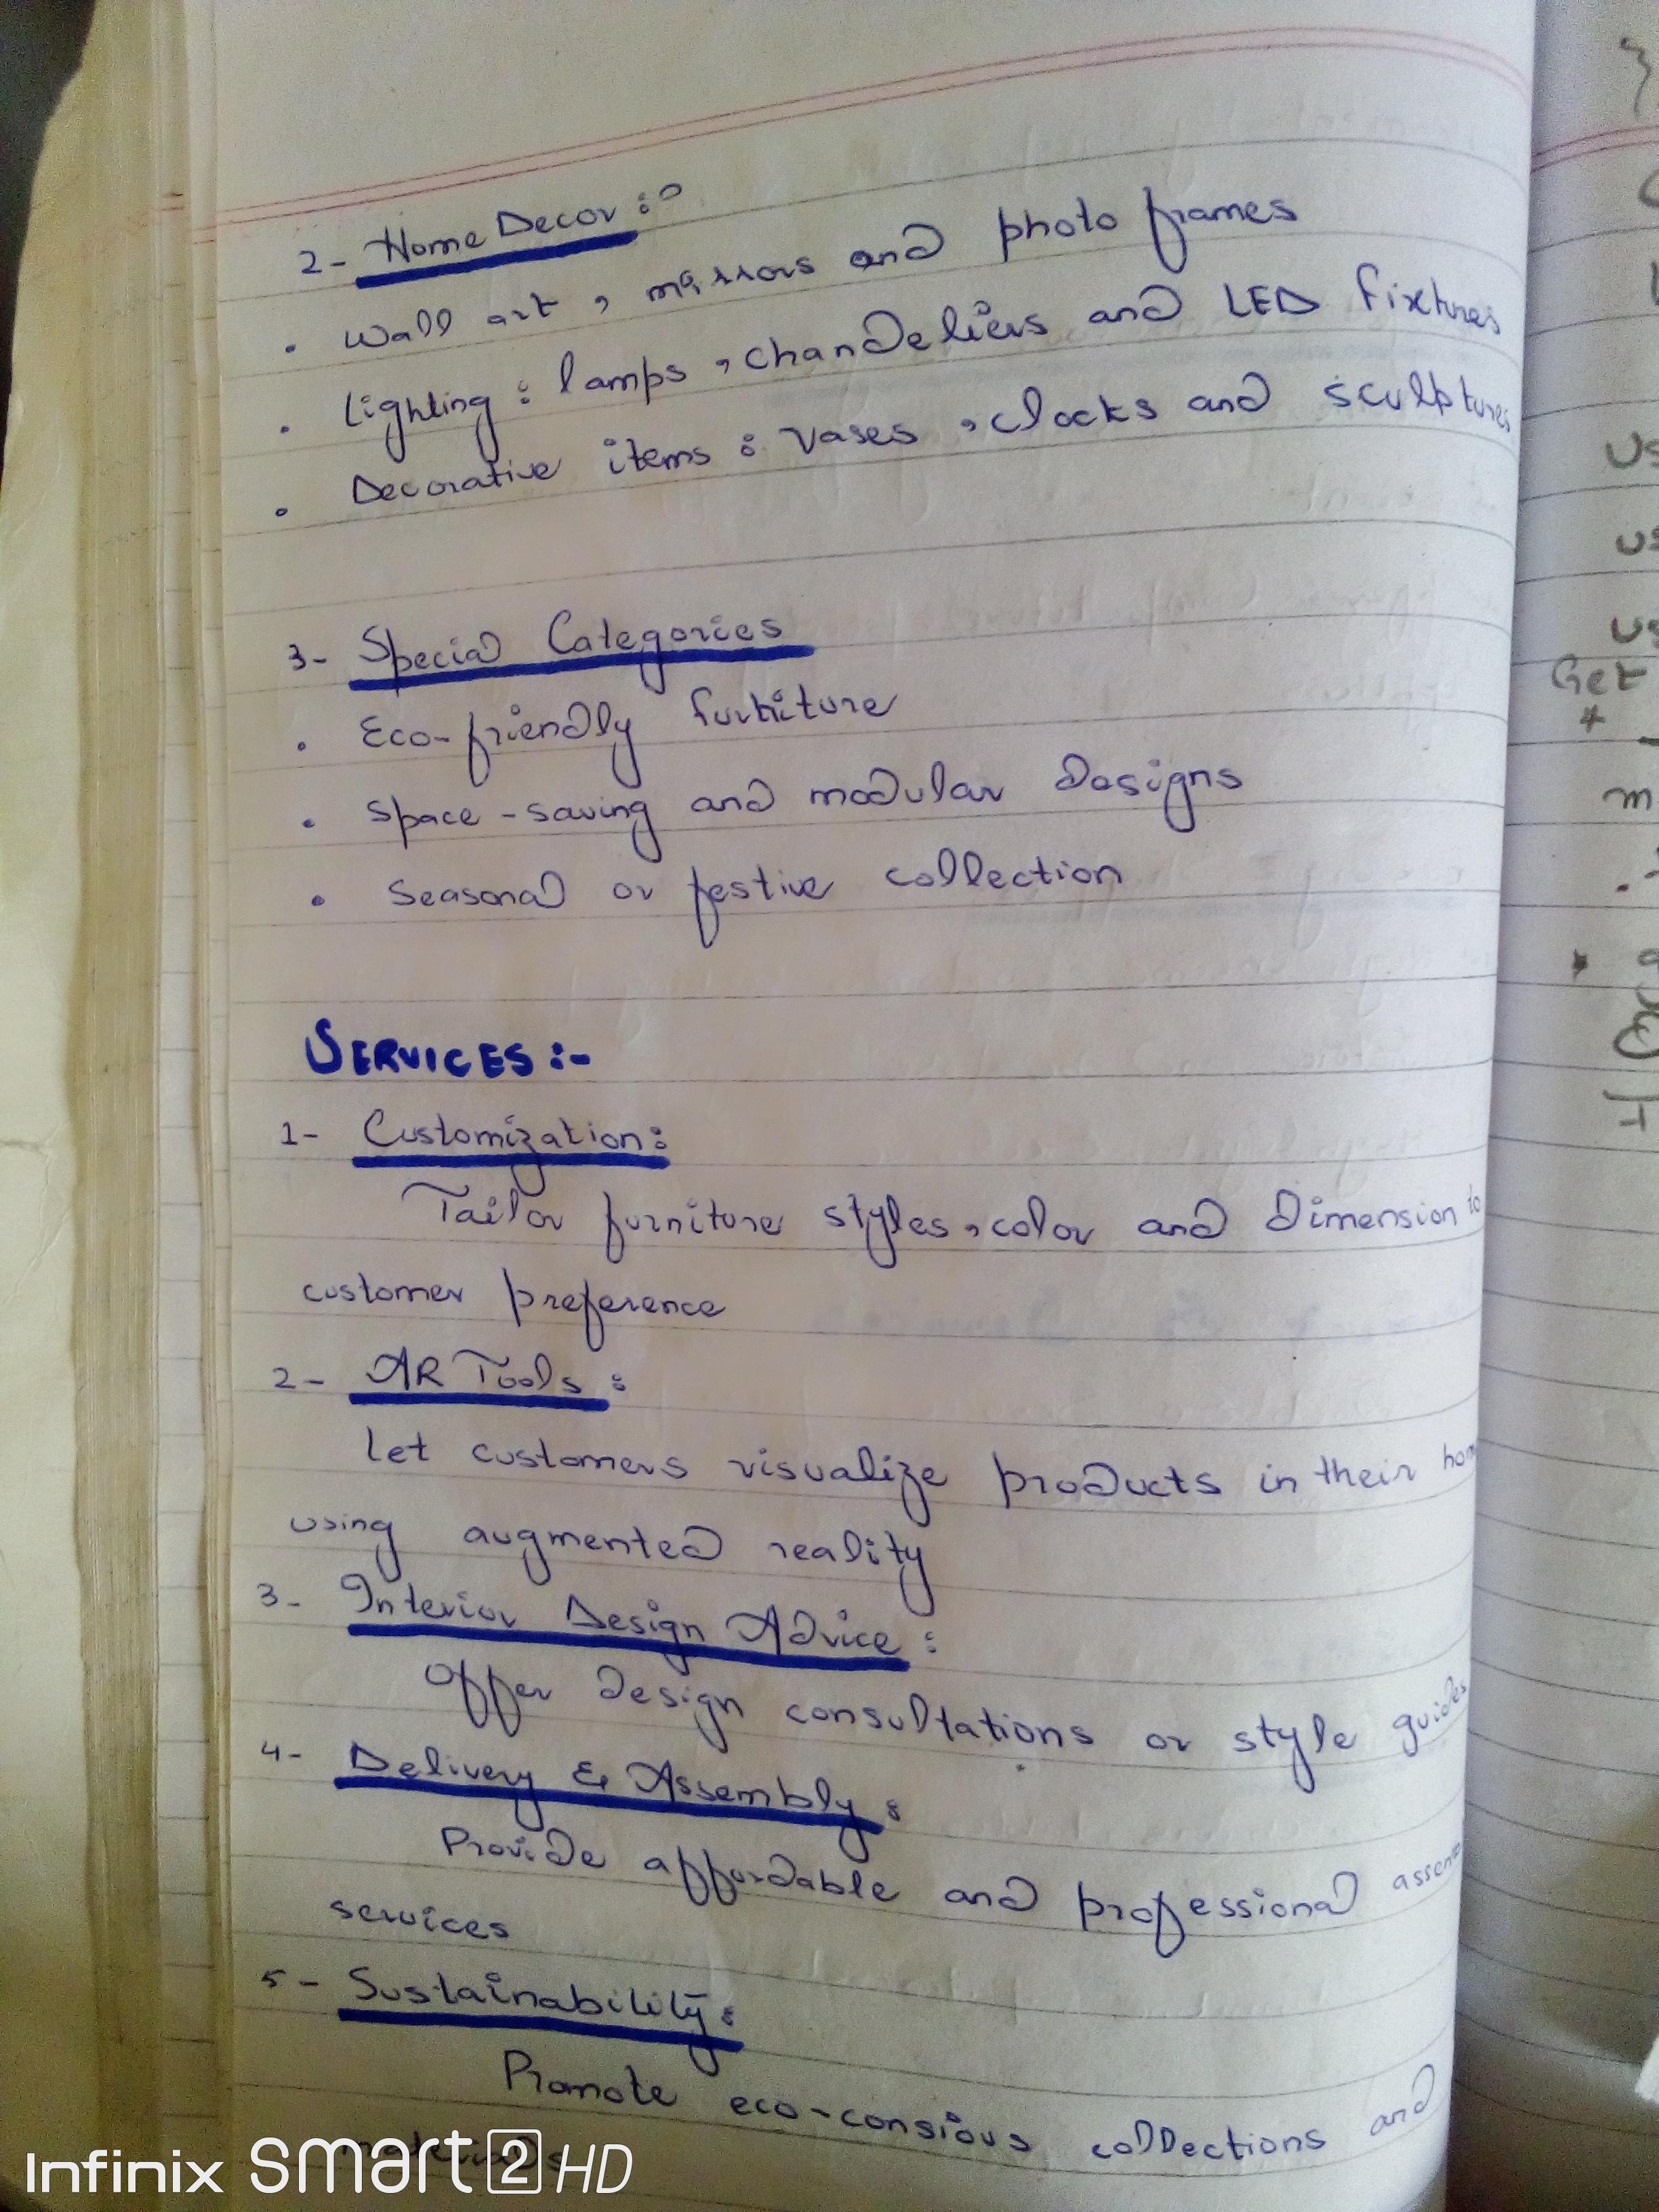 2- Home Decor :-
• Wall art , mirrors and photo frames
• Lighting : lamps , chandeliers and LED fixtures
• Decorative items : vases , clocks and sculptures
3- Special Categories
• Eco-friendly furniture
• Space-saving and modular designs
• Seasonal or festive collection
SERVICES :-
1- Customization :
Tailor furniture styles , color and dimension to
customer preference
2- AR Tools :
Let customers visualize products in their
using augmented reality
3- Interior Design Advice :
Offer design consultations or style guides
4- Delivery & Assembly :
Provide affordable and professional
services
5- Sustainability :
Promote eco-consious collections and
materials
Infinix smart 2 HD
Get